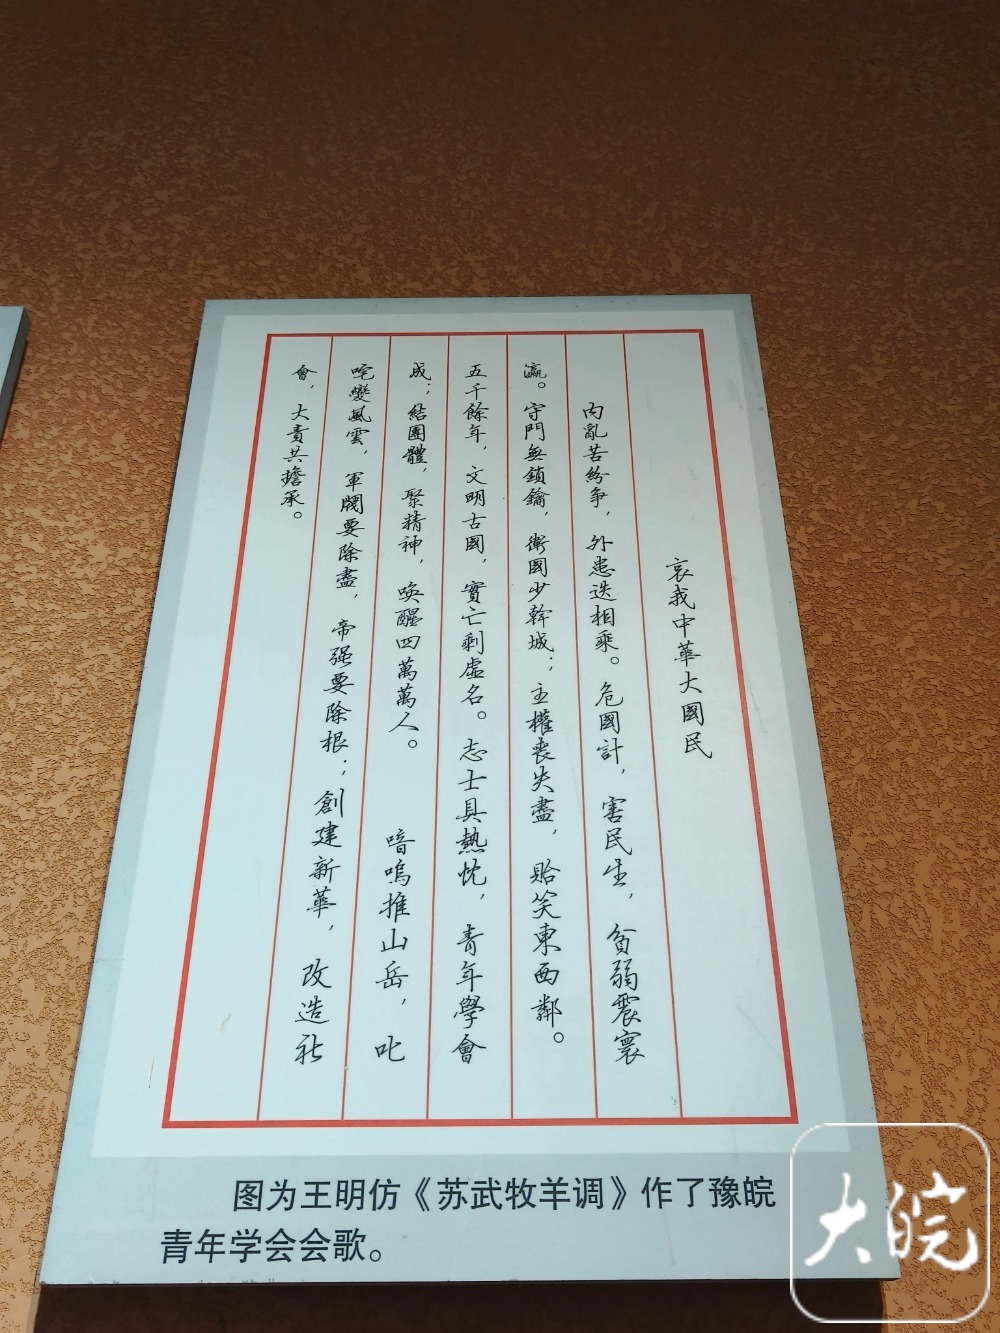 哀我中華大國民
內亂苦紛争，外患迭相乘。危國計，害民生，貧弱震寰
瀛。守門無鎖鑰，衛國少幹城；主權喪失盡，貽笑東西鄰。
五千餘年，文明古國，實亡剩虛名。志士具熱忱，青年學會
成；結團體，聚精神，喚醒四萬萬人。 喑嗚推山岳，叱
咤變風雲，軍閥要除盡，帝强要除根；創建新華，改造社
會，大責共擔承。
图为王明仿《苏武牧羊调》作了豫皖
青年学会会歌。
大皖